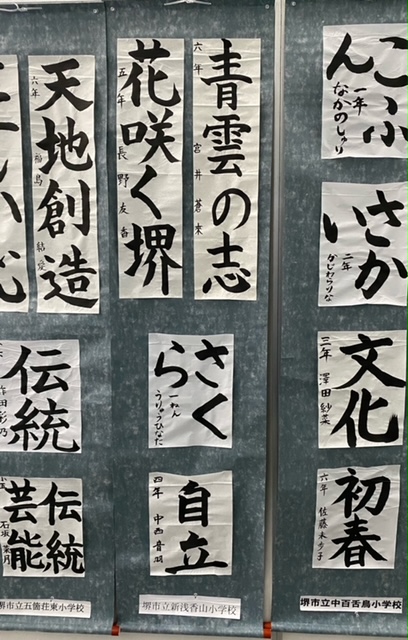 こふん
一年
なかのしゅり
さかい
二年
かじわらりな
文化
三年 澤田 紗菜
初春
六年 佐藤
堺市立中百舌鳥小学校
青雲の志
六年 宮井 蒼来
花咲く堺
五年 長野 友香
さくら
一ねん
うりゅうひなた
自立
四年 中西 音羽
堺市立新浅香山小学校
天地創造
六年 福島 結愛
伝統
伝統
芸能
市立五箇荘東小学校